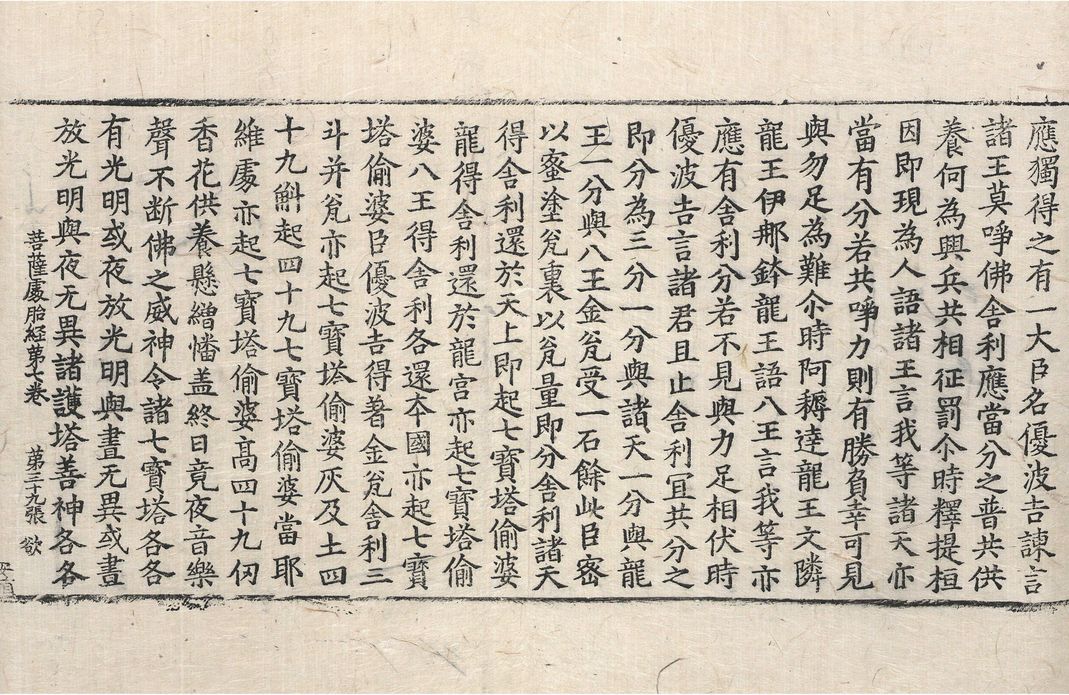 應獨得之有一大臣名優波吉諫言
諸王莫啼佛舍利應當分之普共供
養何為興兵共相征罰尒時釋提桓
因即現為人語諸王言我等諸天亦
當有分若共啼力則有勝負幸可見
與勿足為難尒時阿耨達龍王文隣
龍王伊那鉢龍王語八王言我等亦
應有舍利分若不見與力足相伏時
優波吉言諸君且止舍利冝共分之
即分為三分一分與諸天一分與龍
王一分與八王金瓫受一石餘此臣密
以蜜塗瓫裏以瓫量即分舍利諸天
得舍利還於天上即起七寶塔偷婆
龍得舍利還於龍宮亦起七寶塔偷
婆八王得舍利各還夲國亦起七寶
塔偷婆臣優波吉得著金瓫舍利三
斗并瓫亦起七寶塔偷婆灰及土四
十九斛起四十九七寶塔偷婆當耶
維處亦起七寶塔偷婆高四十九仞
香花供養懸繒幡盖終日竟夜音樂
聲不断佛之威神令諸七寶塔各各
有光明或夜放光明與晝无異或晝
放光明與夜无異諸護塔善神各各
菩薩處胎經第七卷 第三十九張 欲